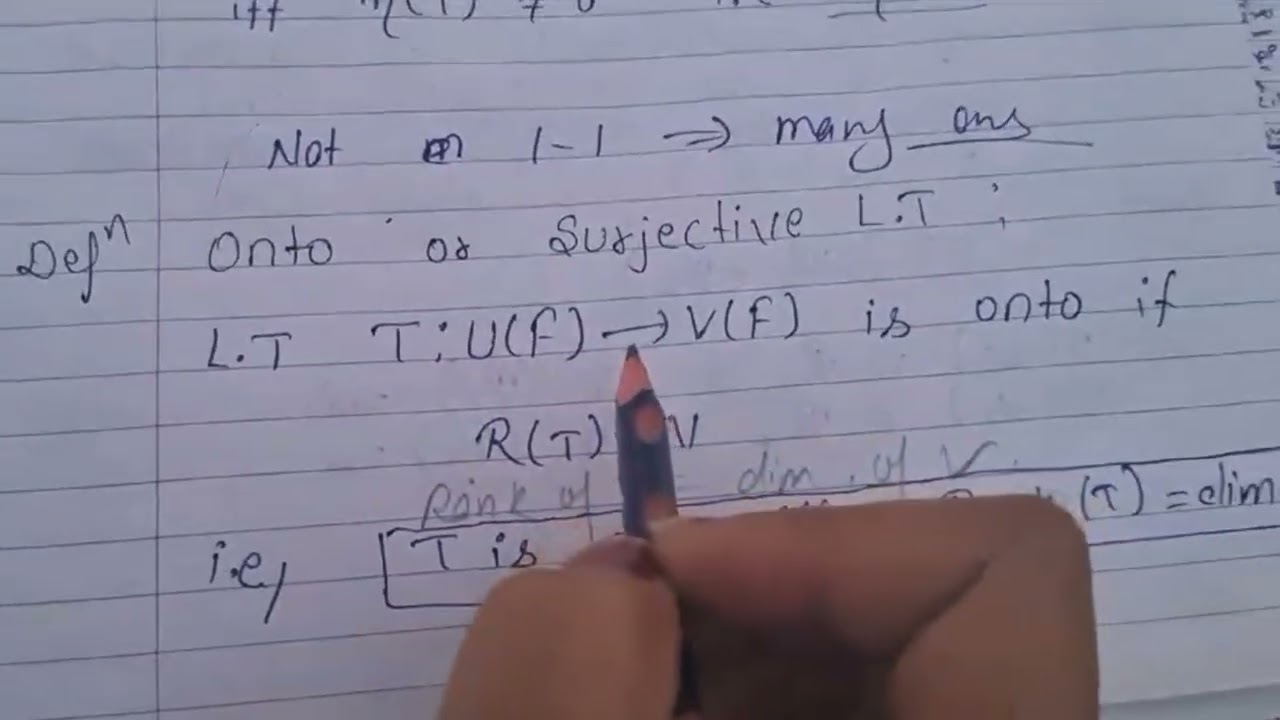 iff η(T) ≠ 0
Not 1-1 ⇒ many ons
Defⁿ Onto or Surjective L.T ;
L.T T:U(F) → V(F) is onto if
R(T) V
Rank of = dim. of V.
i.e, T is (T) = dim